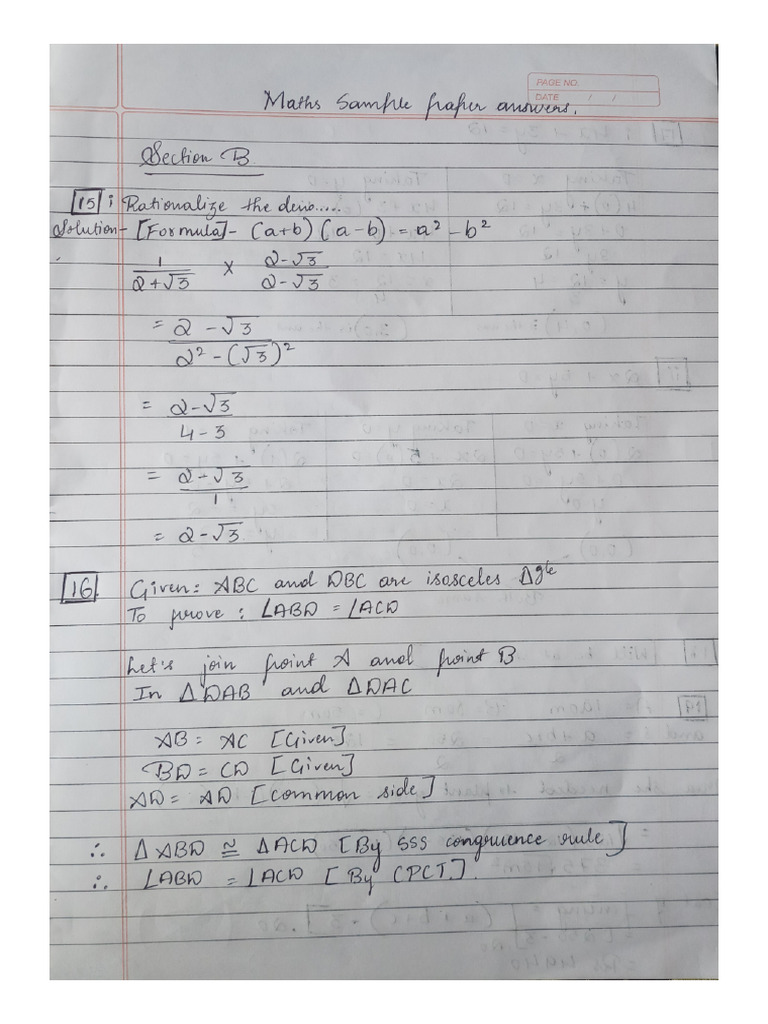 PAGE NO.
DATE / /
Maths Sample paper answers.
Section B
15 ; Rationalize the deno.....
Solution - [Formula] - (a+b) (a-b) = a² - b²
1/2+√3 × 2-√3/2-√3
= 2-√3/2²-(√3)²
= 2-√3/4-3
= 2-√3/1
= 2-√3
16. Given: ABC and DBC are isosceles Δgle
To prove : ∠ABD = ∠ACD
Let's join point A and point B
In ΔDAB and ΔDAC
AB = AC [Given]
BD = CD [Given]
AD = AD [common side]
∴ ΔABD ≅ ΔACD [By SSS congruence rule]
∴ ∠ABD = ∠ACD [By CPCT].